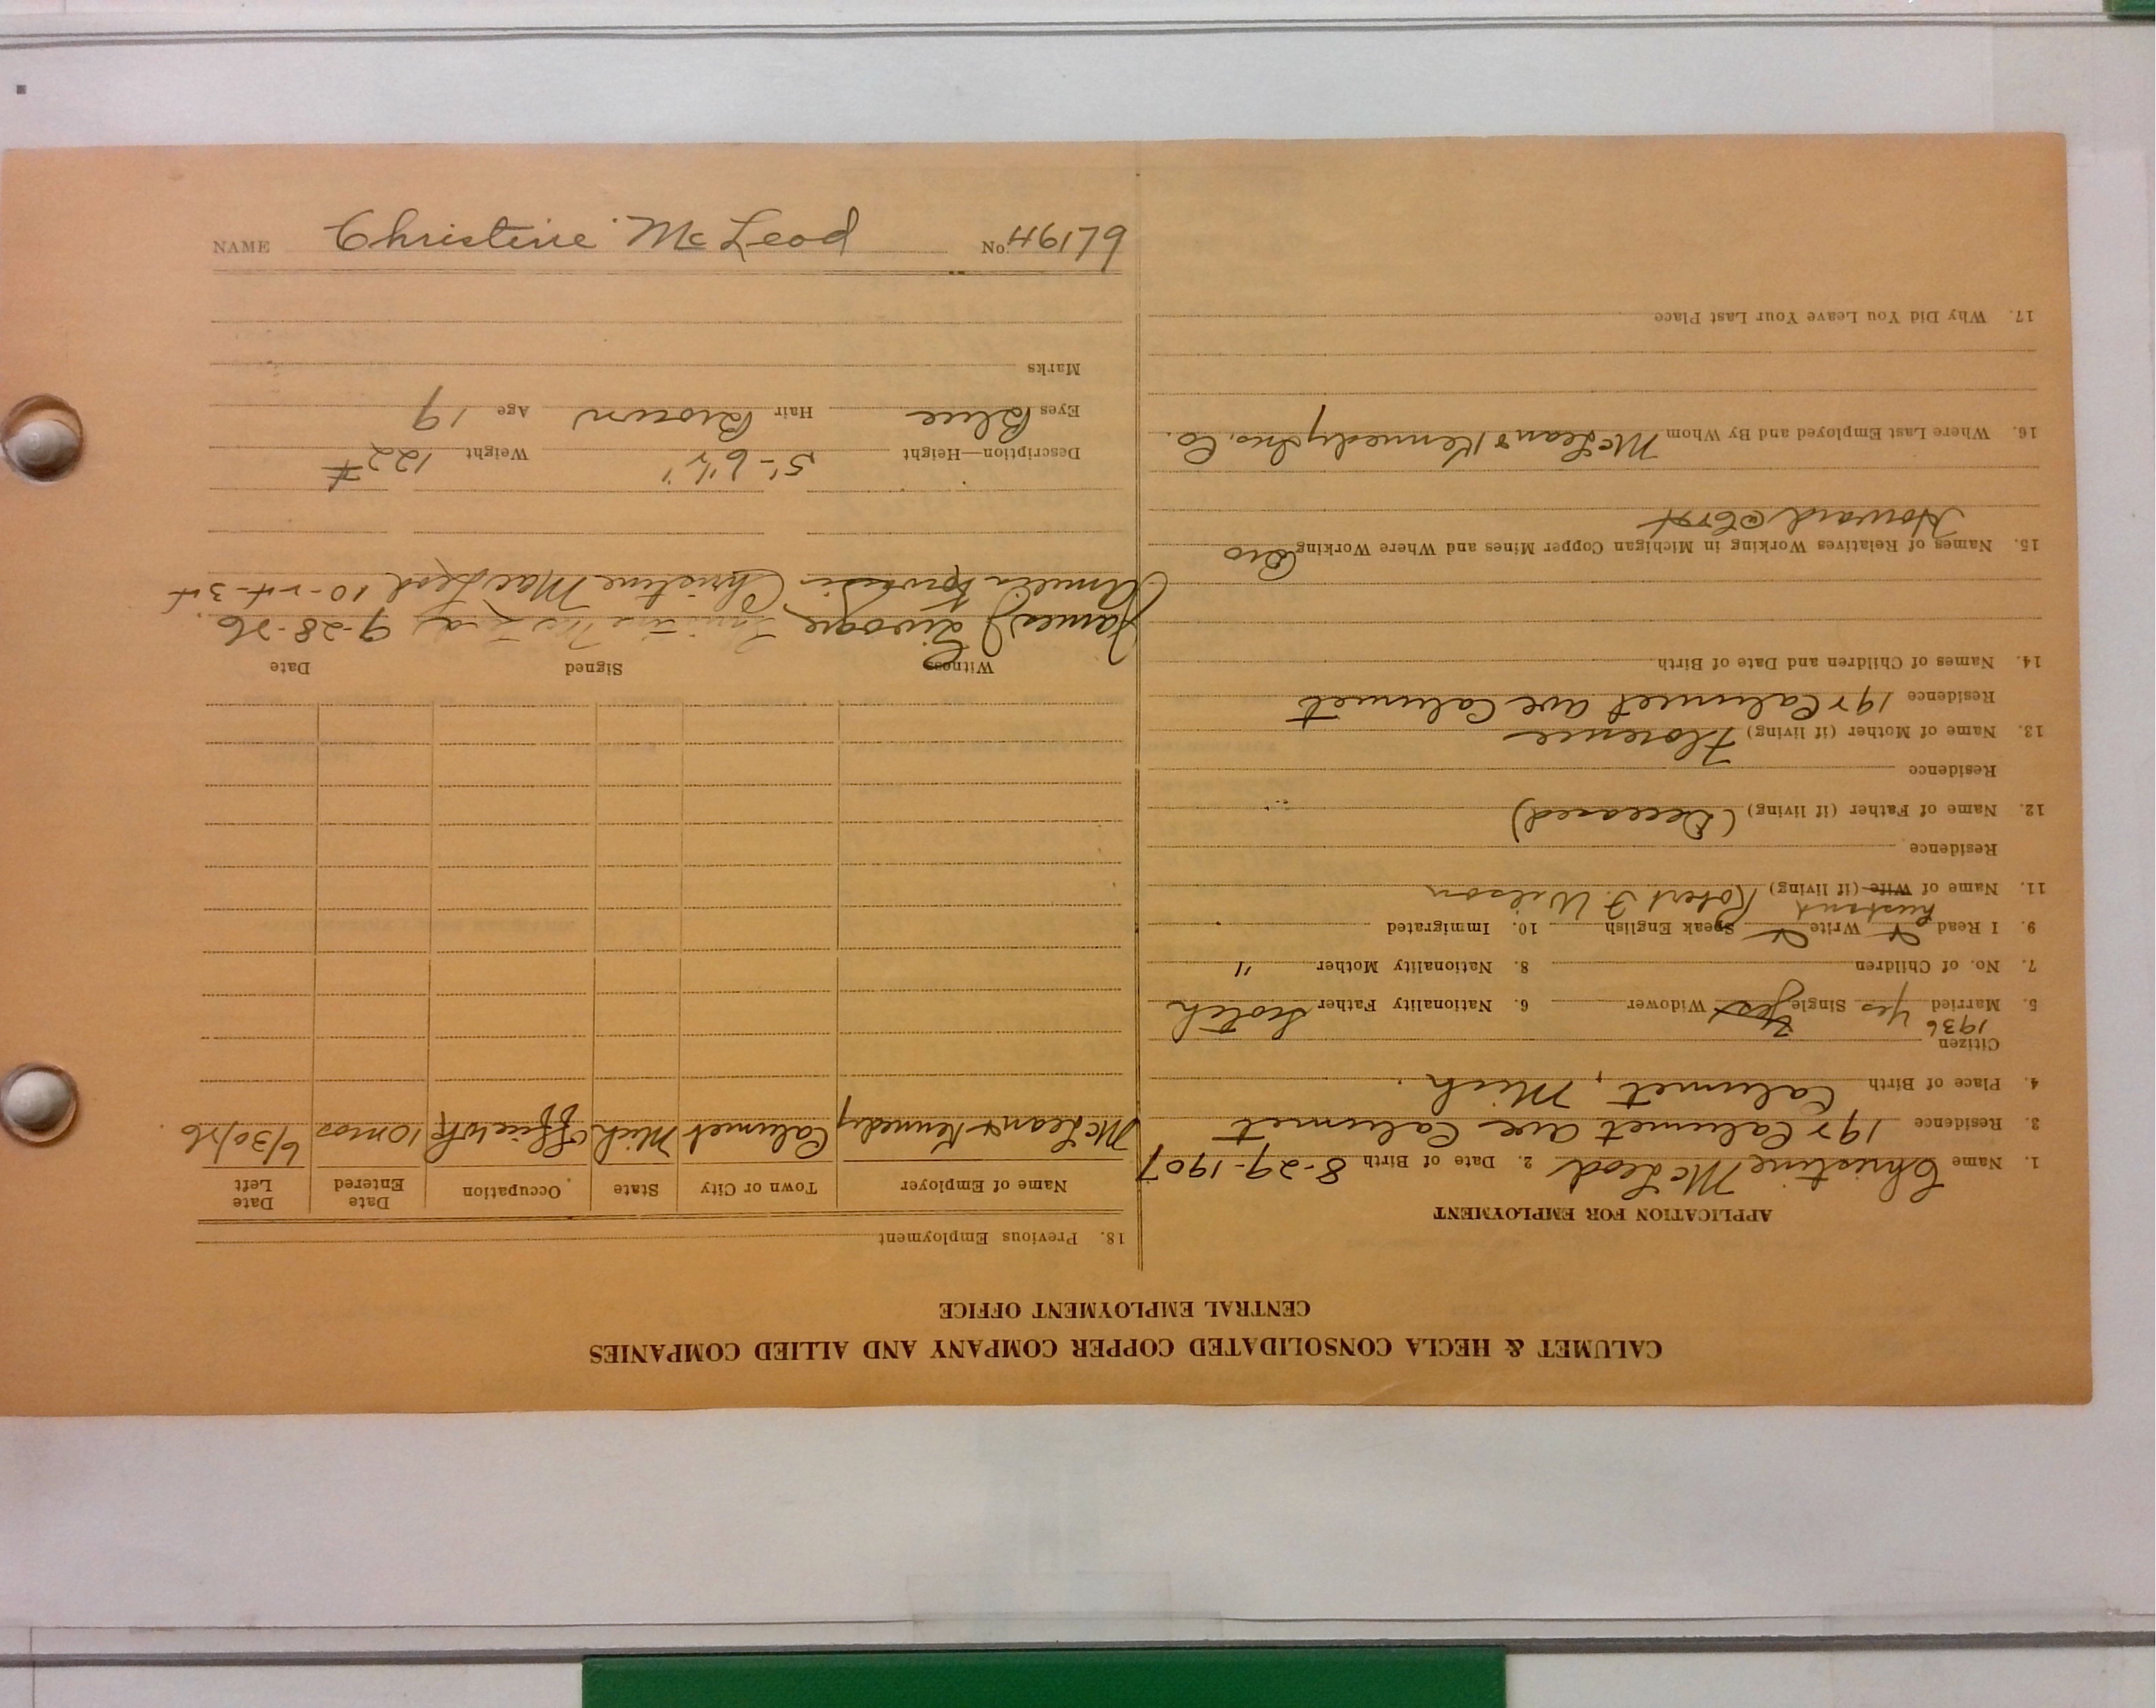 NAME Christine McLeod No. 46179
CALUMET & HECLA CONSOLIDATED COPPER COMPANY AND ALLIED COMPANIES
CENTRAL EMPLOYMENT OFFICE
APPLICATION FOR EMPLOYMENT
1. Name Christine McLeod 2. Date of Birth 8-29-1907
3. Residence 192 Calumet ave Calumet
4. Place of Birth Calumet, Mich.
Citizen
1936
5. Married Yes Single Yes Widower 6. Nationality Father Scotch
7. No. of Children 8. Nationality Mother "
9. I Read Write Speak English 10. Immigrated
husband
11. Name of Wife (if living) Robert F. Wilson
Residence
12. Name of Father (if living) (Deceased)
Residence
13. Name of Mother (if living) Florence
Residence 192 Calumet ave Calumet
14. Names of Children and Date of Birth
15. Names of Relatives Working in Michigan Copper Mines and Where Working Bro
Howard
16. Where Last Employed and By Whom McLean & Kennedy Ins. Co.
17. Why Did You Leave Your Last Place
18. Previous Employment
Name of Employer Town or City State Occupation Date Entered Date Left
McLean & Kennedy Calumet Mich Office wk 10 mos 6/30/26
Witness Signed Date
James 9-28-26.
Christine MacLeod 10-24-34
Description—Height 5'-6½" Weight 122#
Eyes Blue Hair Brown Age 19
Marks